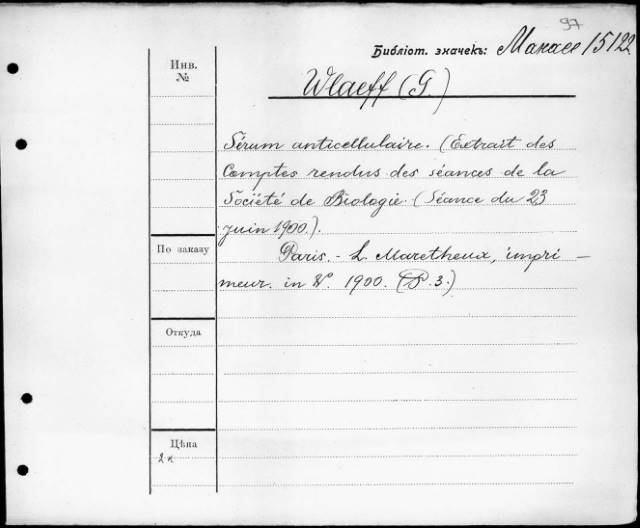 97
Библіот. значекъ: Макае 15122
Инв. №
Wlaeff (G.)
Sérum anticellulaire. (Extrait des
Comptes rendus des séances de la
Société de Biologie. (Séance du 23
juin 1900.).
Paris. - L. Maretheux, impri-
meur. in 8º. 1900. (P. 3.)
По заказу
Откуда
Цѣна
2 к